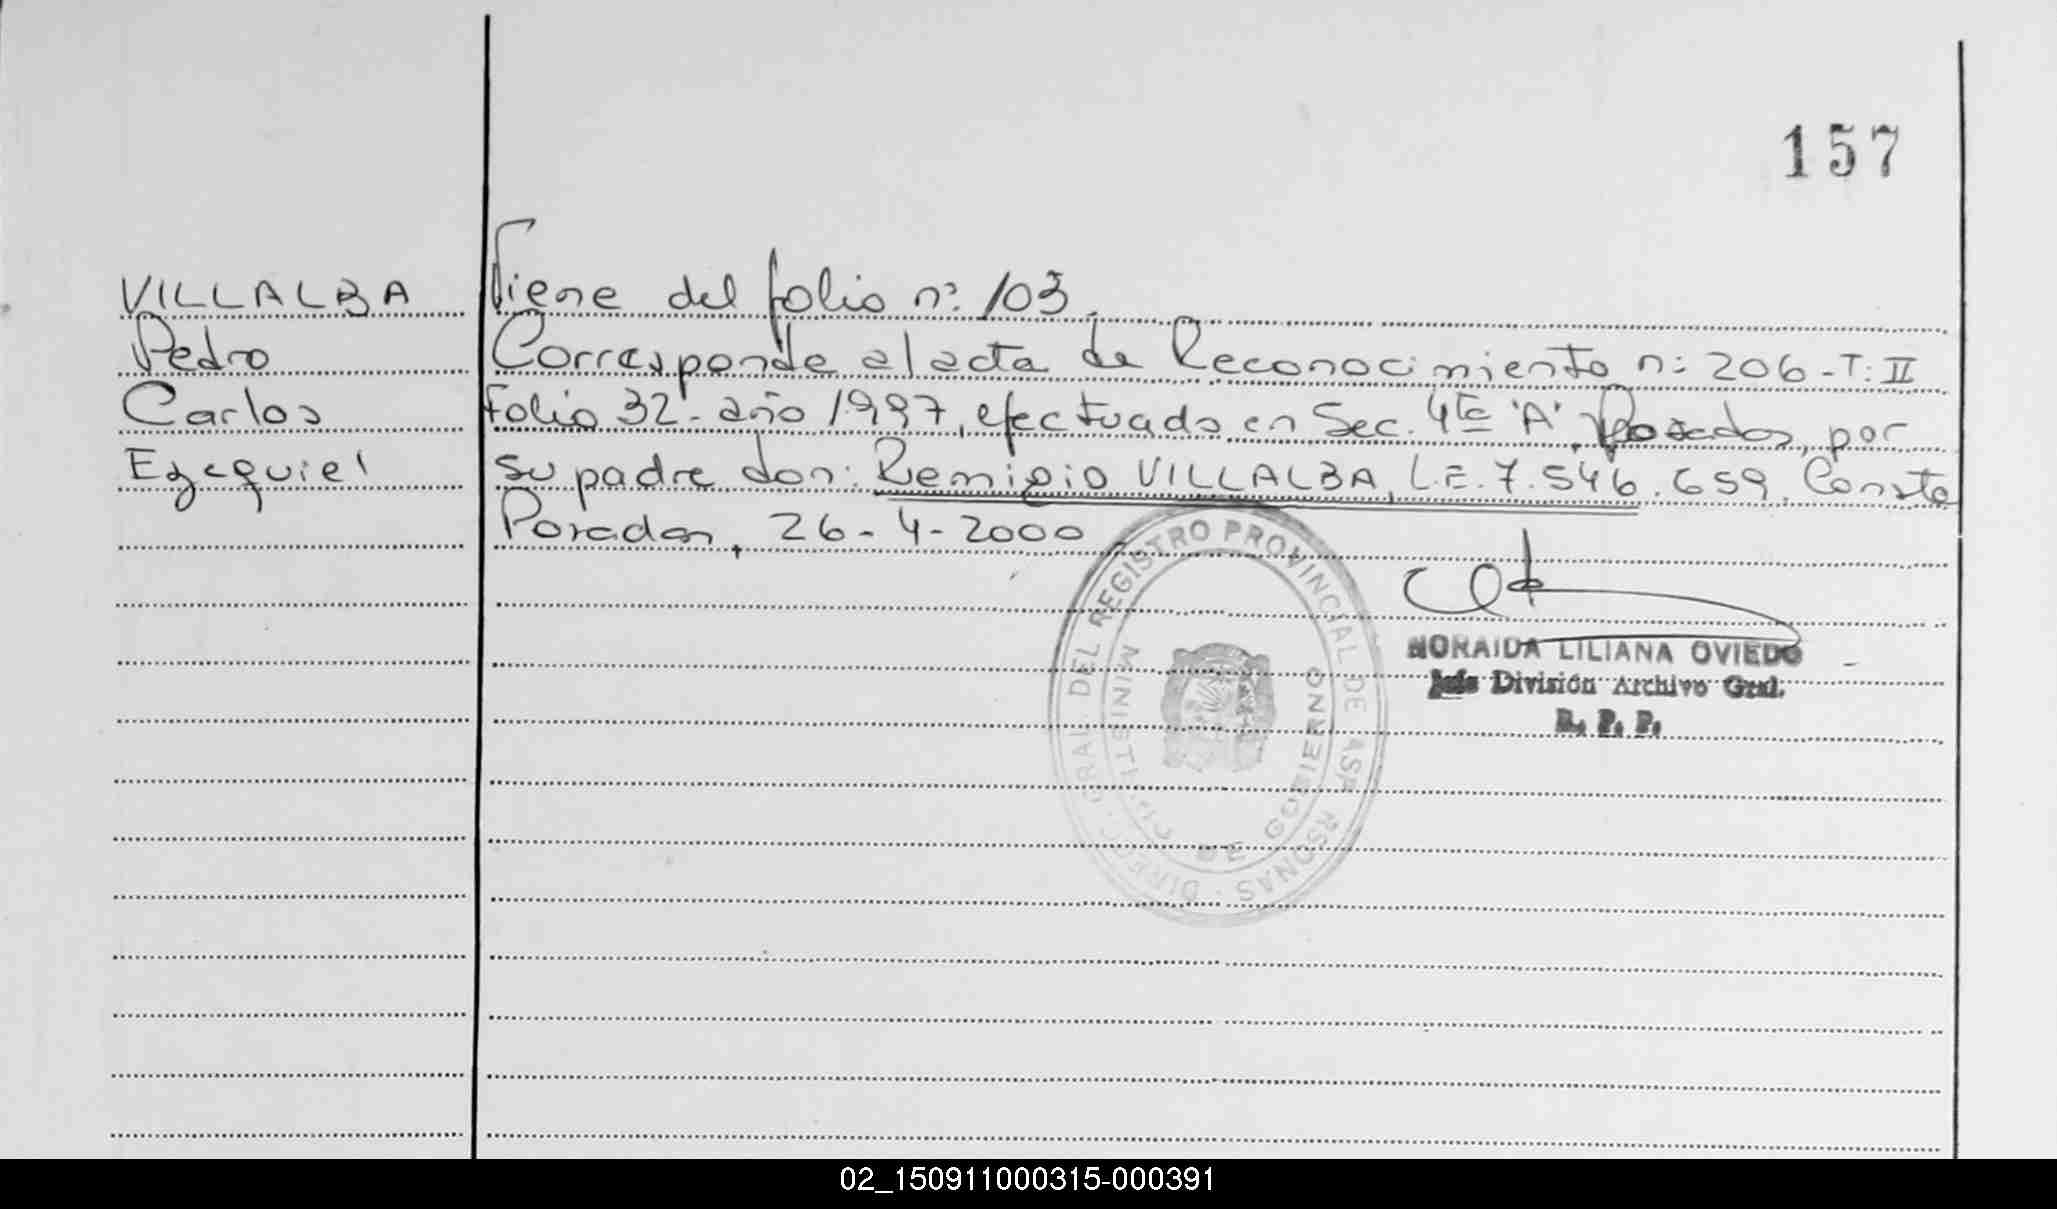 157
VILLALBA
Pedro
Carlos
Ezequiel
Viene del folio nº: 103.
Corresponde al acta de Reconocimiento n: 206-T: II
Folio 32- año 1997, efectuado en Sec. 4ta "A", Posadas, por
su padre don: Remigio VILLALBA, L.E. 7.546.659. Conste
Posadas, 26-4-2000
DIRECC. GRAL. DEL REGISTRO PROVINCIAL DE
MINIST
DE GOBIERNO
NORAIDA LILIANA OVIEDO
Jefe División Archivo Gral.
R. P. P.
02_150911000315-000391